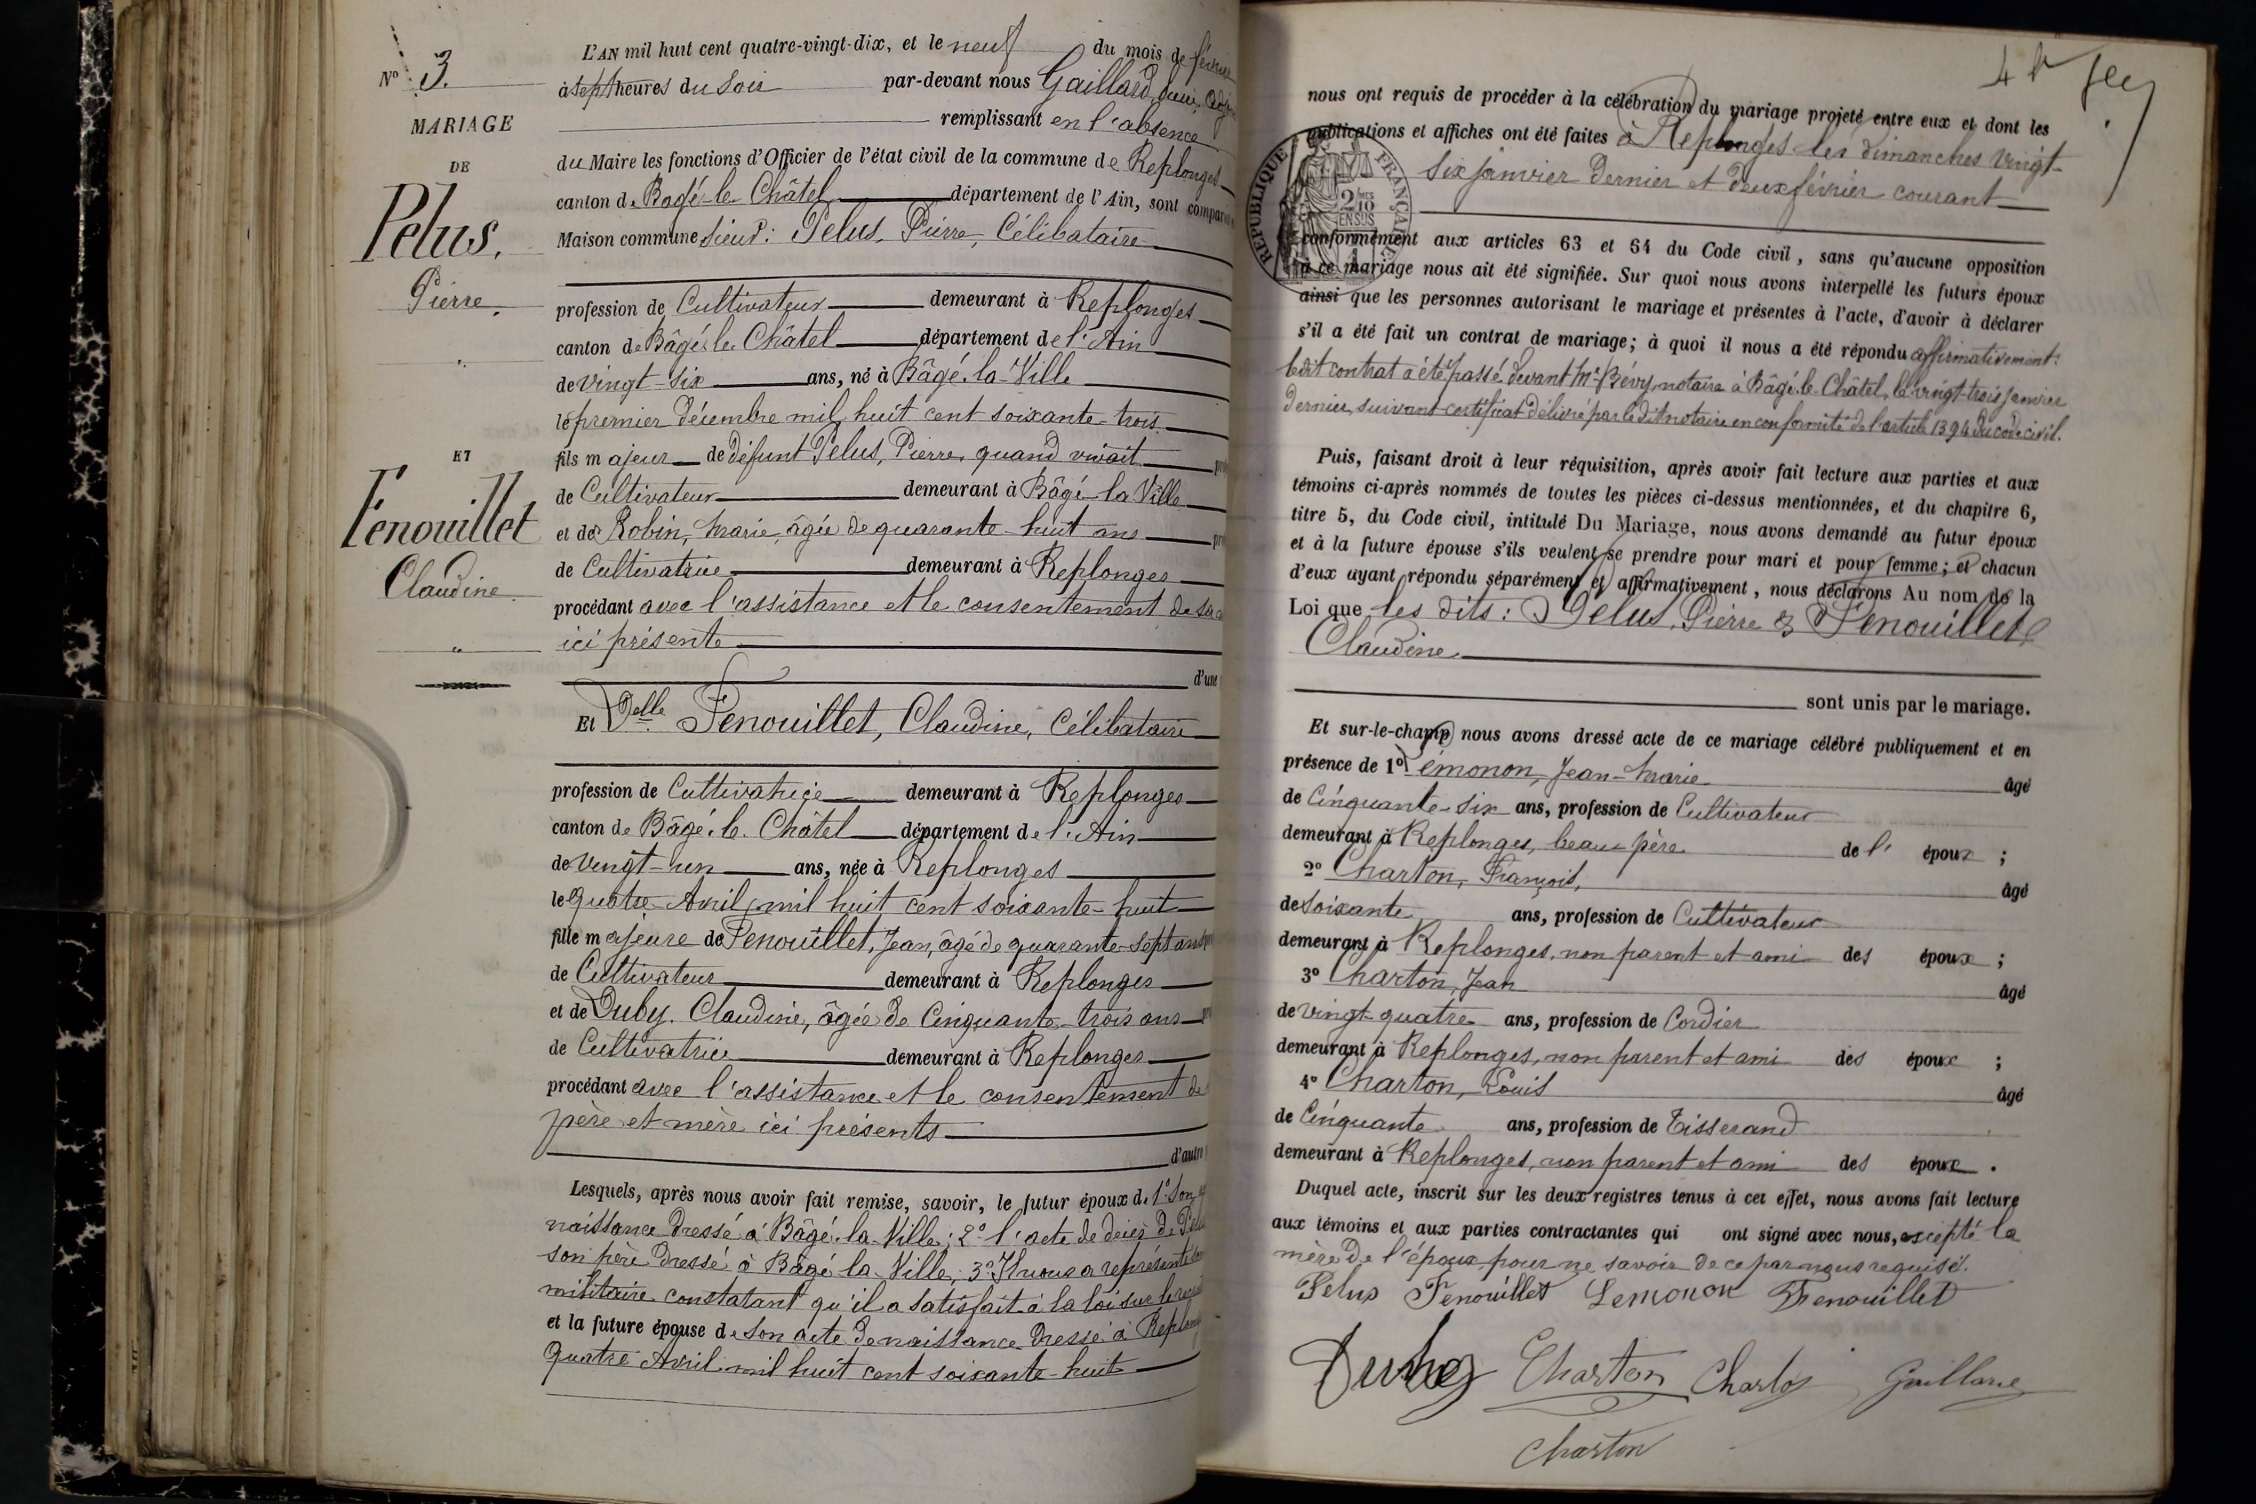 N° 3.
MARIAGE
DE
Pelus,
Pierre,
ET
Fenouillet
Claudine
L'AN mil huit cent quatre-vingt-dix, et le neuf du mois de février
à sept heures du soir par-devant nous Gaillard,
remplissant en l'absence
du Maire les fonctions d'Officier de l'état civil de la commune de Replonges
canton de Bagé-le-Châtel département de l'Ain, sont comparus
Maison commune sieur : Pelus, Pierre, Célibataire
profession de Cultivateur demeurant à Replonges
canton de Bâgé-le-Châtel département de l'Ain
de vingt-six ans, né à Bâgé-la-Ville
le premier décembre mil huit cent soixante-trois
fils majeur de défunt Pelus, Pierre, quand vivait
de Cultivateur demeurant à Bâgé-la-Ville
et de Robin, Marie, âgée de quarante-huit ans
de Cultivatrice demeurant à Replonges
procédant avec l'assistance et le consentement de sa
ici présente
d'une
Et Delle Fenouillet, Claudine, Célibataire
profession de Cultivatrice demeurant à Replonges
canton de Bâgé-le-Châtel département de l'Ain
de vingt-un ans, née à Replonges
le quatre Avril mil huit cent soixante-huit
fille majeure de Fenouillet, Jean, âgé de quarante-sept ans
de Cultivateur demeurant à Replonges
et de Duby, Claudine, âgée de Cinquante-trois ans
de Cultivatrice demeurant à Replonges
procédant avec l'assistance et le consentement de
père et mère ici présents
d'autre
Lesquels, après nous avoir fait remise, savoir, le futur époux de 1° Son
naissance dressé à Bâgé-la-Ville ; 2° l'acte de décès de
son père dressé à Bâgé-la-Ville, 3° Il nous a représenté
militaire constatant qu'il a satisfait à la loi sur le
et la future épouse de son acte de naissance dressé à Replonges
quatre Avril mil huit cent soixante-huit
nous ont requis de procéder à la célébration du mariage projeté entre eux et dont les
publications et affiches ont été faites à Replonges les dimanches vingt-
six janvier dernier et deux février courant
RÉPUBLIQUE FRANÇAISE
2/10 EN SUS
conformément aux articles 63 et 64 du Code civil, sans qu'aucune opposition
à ce mariage nous ait été signifiée. Sur quoi nous avons interpellé les futurs époux
ainsi que les personnes autorisant le mariage et présentes à l'acte, d'avoir à déclarer
s'il a été fait un contrat de mariage ; à quoi il nous a été répondu affirmativement :
ledit contrat a été passé devant Me Bévy, notaire à Bâgé-le-Châtel, le vingt-trois janvier
dernier, suivant certificat délivré par le dit notaire en conformité de l'article 1394 du code civil.
Puis, faisant droit à leur réquisition, après avoir fait lecture aux parties et aux
témoins ci-après nommés de toutes les pièces ci-dessus mentionnées, et du chapitre 6,
titre 5, du Code civil, intitulé Du Mariage, nous avons demandé au futur époux
et à la future épouse s'ils veulent se prendre pour mari et pour femme ; et chacun
d'eux ayant répondu séparément et affirmativement, nous déclarons Au nom de la
Loi que les dits : Pelus, Pierre & Fenouillet
Claudine
sont unis par le mariage.
Et sur-le-champ nous avons dressé acte de ce mariage célébré publiquement et en
présence de 1° Lémonon, Jean-Marie âgé
de Cinquante-six ans, profession de Cultivateur
demeurant à Replonges, beau-père de l'époux ;
2° Charton, François, âgé
de soixante ans, profession de Cultivateur
demeurant à Replonges, non parent et ami des époux ;
3° Charton, Jean âgé
de vingt-quatre ans, profession de Cordier
demeurant à Replonges, non parent et ami des époux ;
4° Charton, Louis âgé
de Cinquante ans, profession de Tisserand
demeurant à Replonges, non parent et ami des époux.
Duquel acte, inscrit sur les deux registres tenus à cet effet, nous avons fait lecture
aux témoins et aux parties contractantes qui ont signé avec nous, excepté la
mère de l'époux pour ne savoir de ce par nous requise.
Pelus Fenouillet Lemonon Fenouillet
Duby Charton Charton Gaillard
Charton